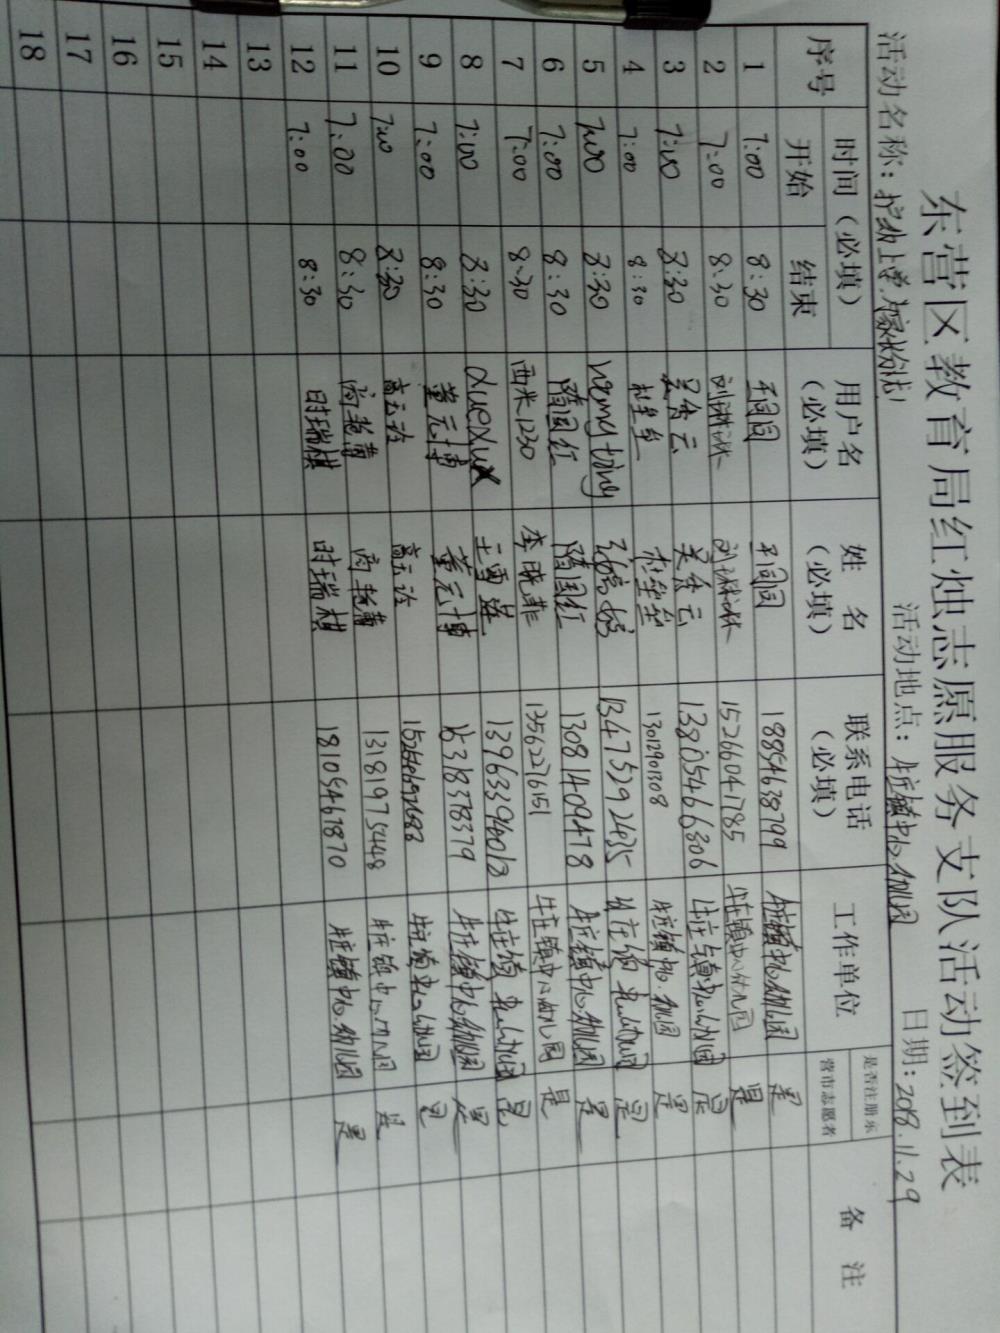 东营区教育局红烛志愿服务支队活动签到表
活动名称： 活动地点：牛庄镇中心幼儿园 日期：2018.11.29
序号 时间（必填） 用户名（必填） 姓名（必填） 联系电话（必填） 工作单位 是否注册东营市志愿者 备注
开始 结束
1 7:00 8:30 王同同 王同同 18854638799 牛庄镇中心幼儿园 是
2 7:00 8:30 刘琳琳 刘琳琳 15266041785 牛庄镇中心幼儿园 是
3 7:00 8:30 吴秀云 吴秀云 13805466806 牛庄镇中心幼儿园 是
4 7:00 8:30 13012901308 牛庄镇中心幼儿园 是
5 7:00 8:30 13475292635 牛庄镇中心幼儿园 是
6 7:00 8:30 隋国红 隋国红 13081409478 牛庄镇中心幼儿园 是
7 7:00 8:30 西米1230 李晓菲 13562276151 牛庄镇中心幼儿园 是
8 7:00 8:30 王雪莲 牛庄镇中心幼儿园 是
9 7:00 8:30 董元博 董元博 牛庄镇中心幼儿园 是
10 7:00 8:30 高云玲 高云玲 牛庄镇中心幼儿园 是
11 7:00 8:30 尚艳蕾 尚艳蕾 13181975448 牛庄镇中心幼儿园 是
12 7:00 8:30 时瑞棋 时瑞棋 18105461870 牛庄镇中心幼儿园 是
13
14
15
16
17
18